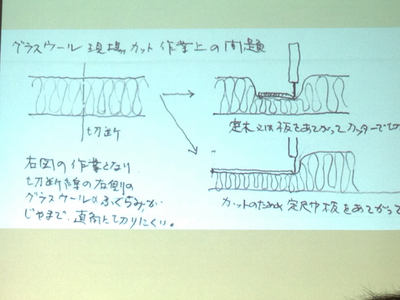 グラスウール現場カット作業上の問題
切断
定木又は板をあてがってカッターで切
右図の作業となり
切断線の左側の
グラスウールのふくらみが
じゃまで、直角に切りにくい。
カットのため 定尺や板をあてがって